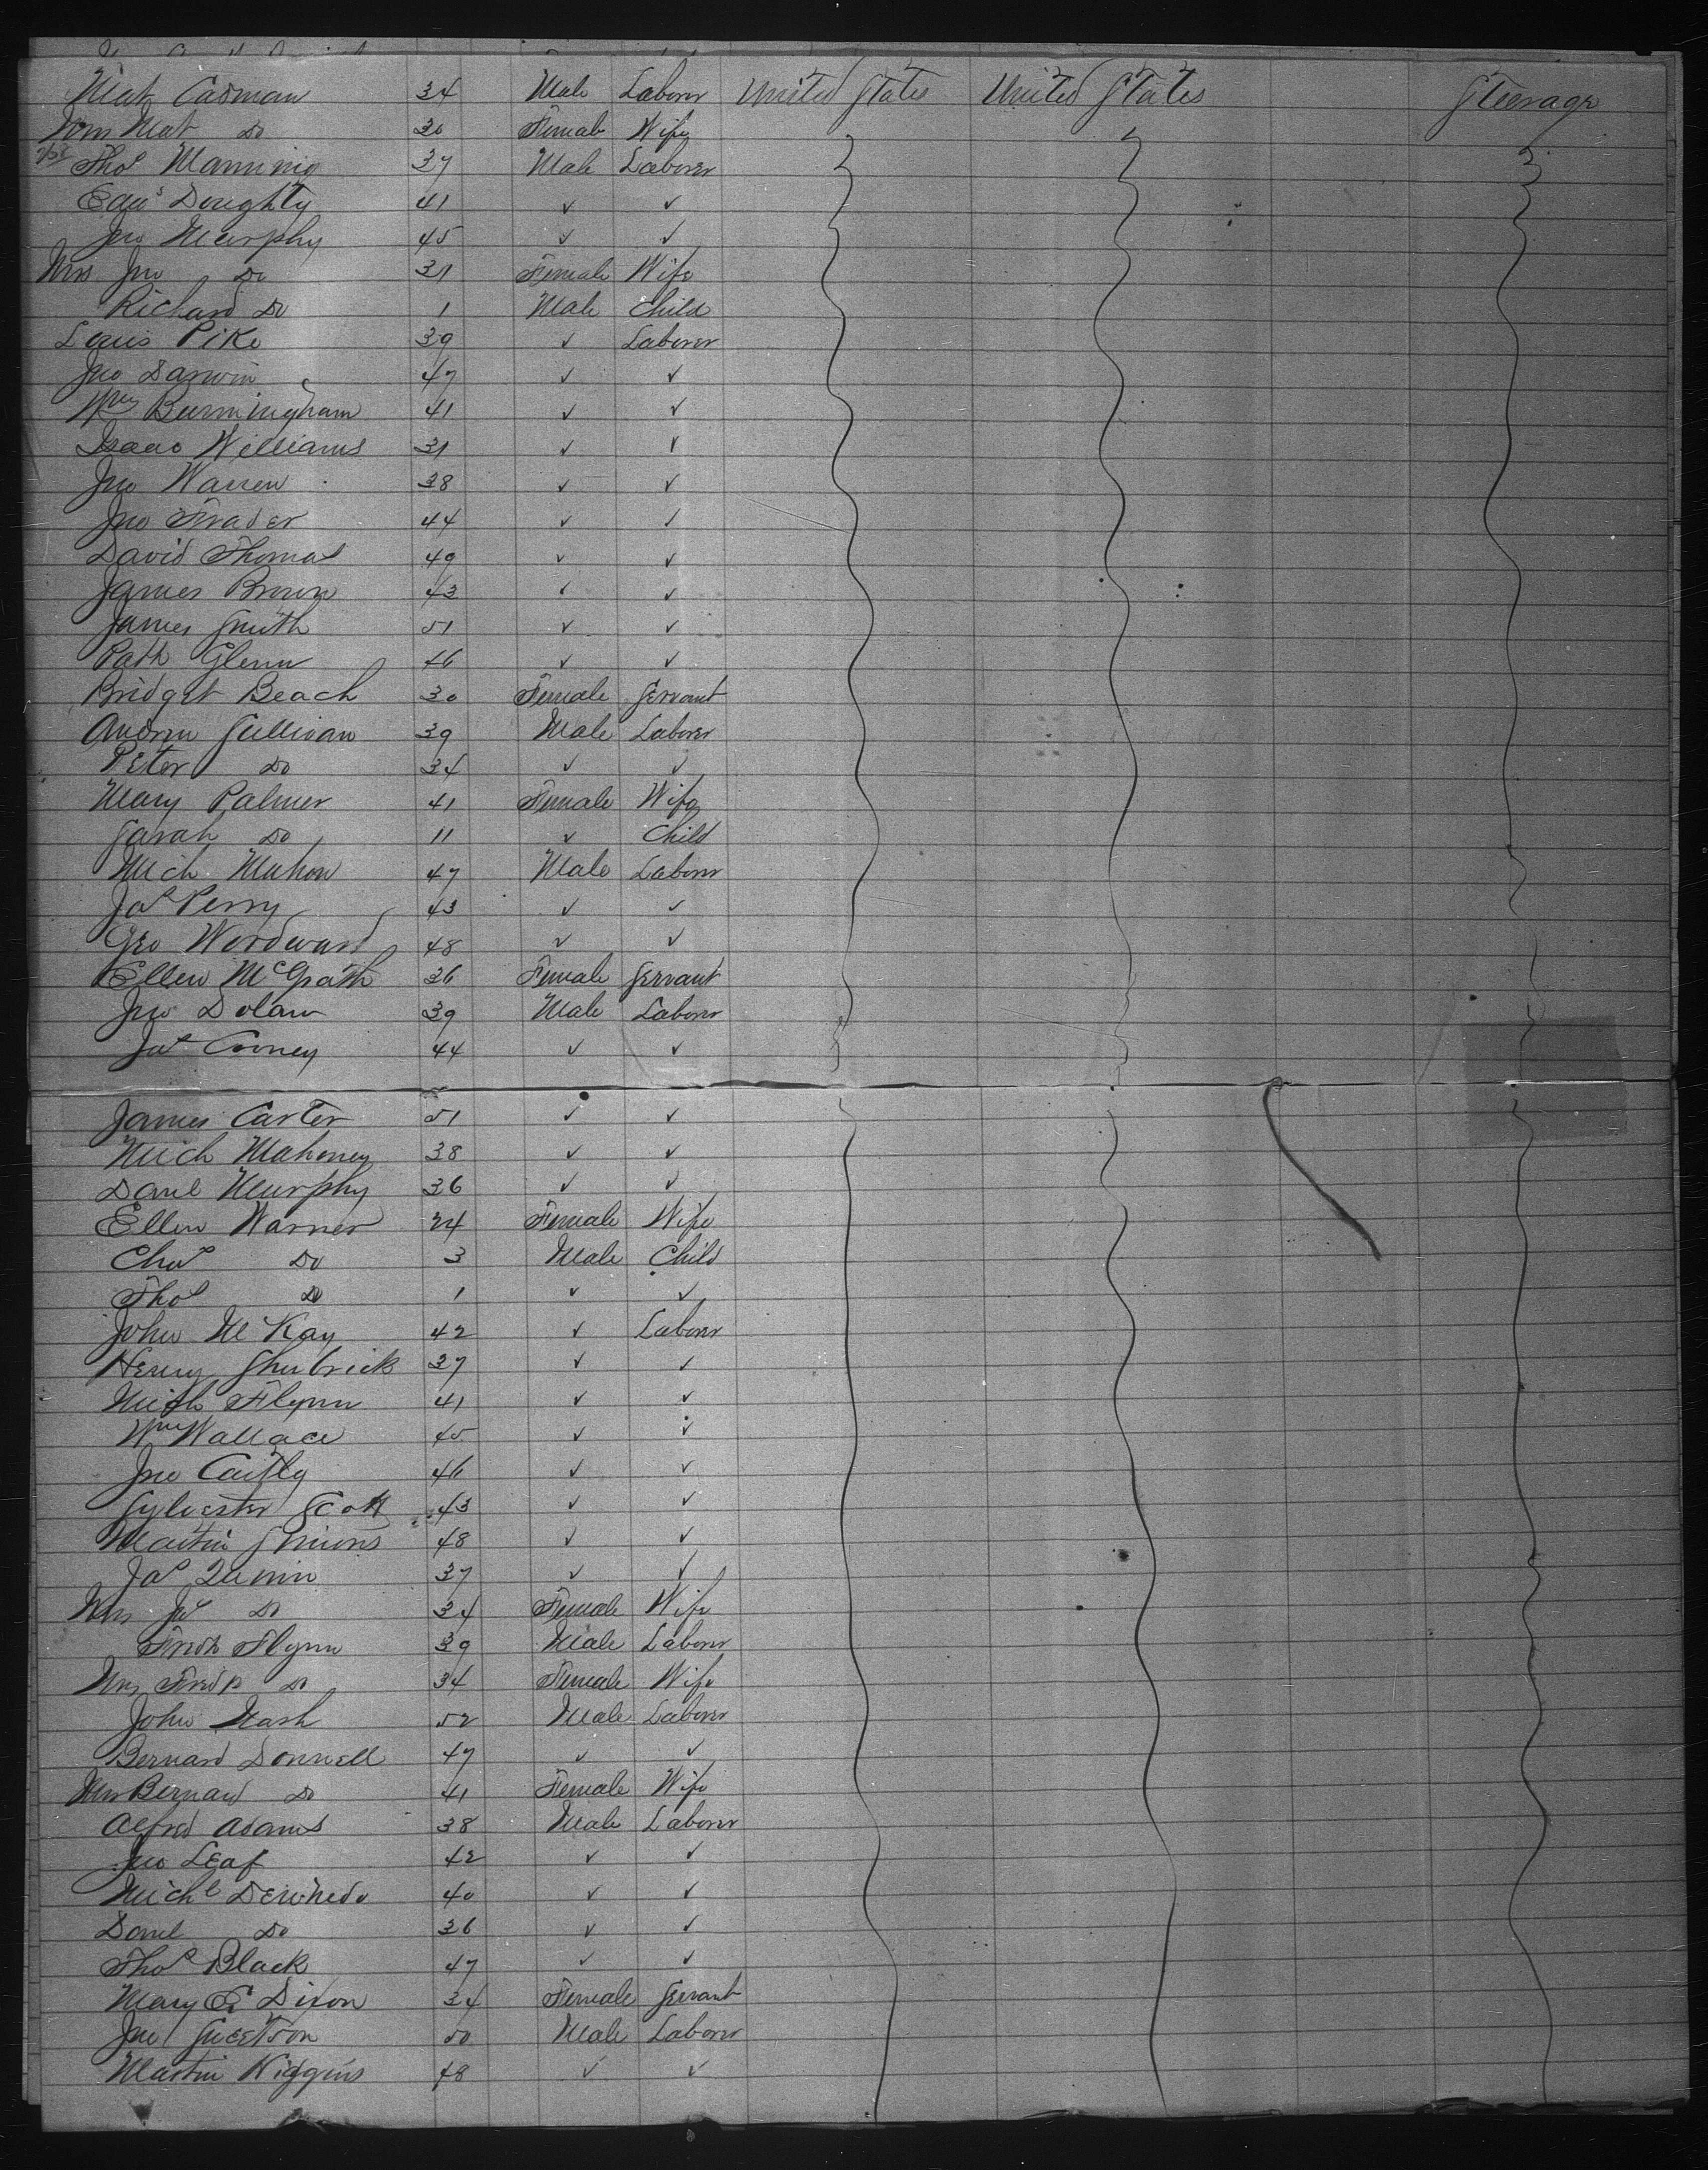 Mat Cadman 34 Male Laborer United States United States Steerage
Mrs Mat Do 30 Female Wife
Thos Manning 37 Male Laborer
Edwd Doughty 41 ✓ ✓
Jno Murphy 45 ✓ ✓
Mrs Jno Do 31 Female Wife
Richard Do 1 Male Child
Louis Pike 39 ✓ Laborer
Jno Darwin 47 ✓ ✓
Wm Burmingham 41 ✓ ✓
Isaac Williams 31 ✓ ✓
Jno Warren 38 ✓ ✓
Jno Frader 44 ✓ ✓
David Thomas 49 ✓ ✓
James Brown 43 ✓ ✓
James Smith 51 ✓ ✓
Patk Glenn 46 ✓ ✓
Bridget Beach 30 Female Servant
Andrew Sullivan 39 Male Laborer
Peter Do 34 ✓ ✓
Mary Palmer 41 Female Wife
Sarah Do 11 ✓ Child
Mich Mahon 47 Male Laborer
Jas Perry 43 ✓ ✓
Geo Woodward 48 ✓ ✓
Ellen McGrath 36 Female Servant
Jno Dolan 39 Male Laborer
Jas Cooney 44 ✓ ✓
James Carter 51 ✓ ✓
Mich Mahoney 38 ✓ ✓
Danl Murphy 36 ✓ ✓
Ellen Warner 24 Female Wife
Chas Do 3 Male Child
Thos Do 1 ✓ ✓
John McKay 42 ✓ Laborer
Henry Shubrick 37 ✓ ✓
Mich Flynn 41 ✓ ✓
Wm Wallace 45 ✓ ✓
Jno 46 ✓ ✓
Sylvester Scott 43 ✓ ✓
Martin Simons 48 ✓ ✓
Jas Quinn 37 ✓ ✓
Mrs Jas Do 34 Female Wife
Fredk Flynn 39 Male Laborer
Mrs Fredk Do 34 Female Wife
John Nash 52 Male Laborer
Bernard Donnell 47 ✓ ✓
Mrs Bernard Do 41 Female Wife
Alfred Adams 38 Male Laborer
Jno Leaf 42 ✓ ✓
Michl 40 ✓ ✓
Danl Do 36 ✓ ✓
Thos Black 47 ✓ ✓
Mary E Dixon 34 Female Servant
Jno 50 Male Laborer
Martin Higgins 48 ✓ ✓